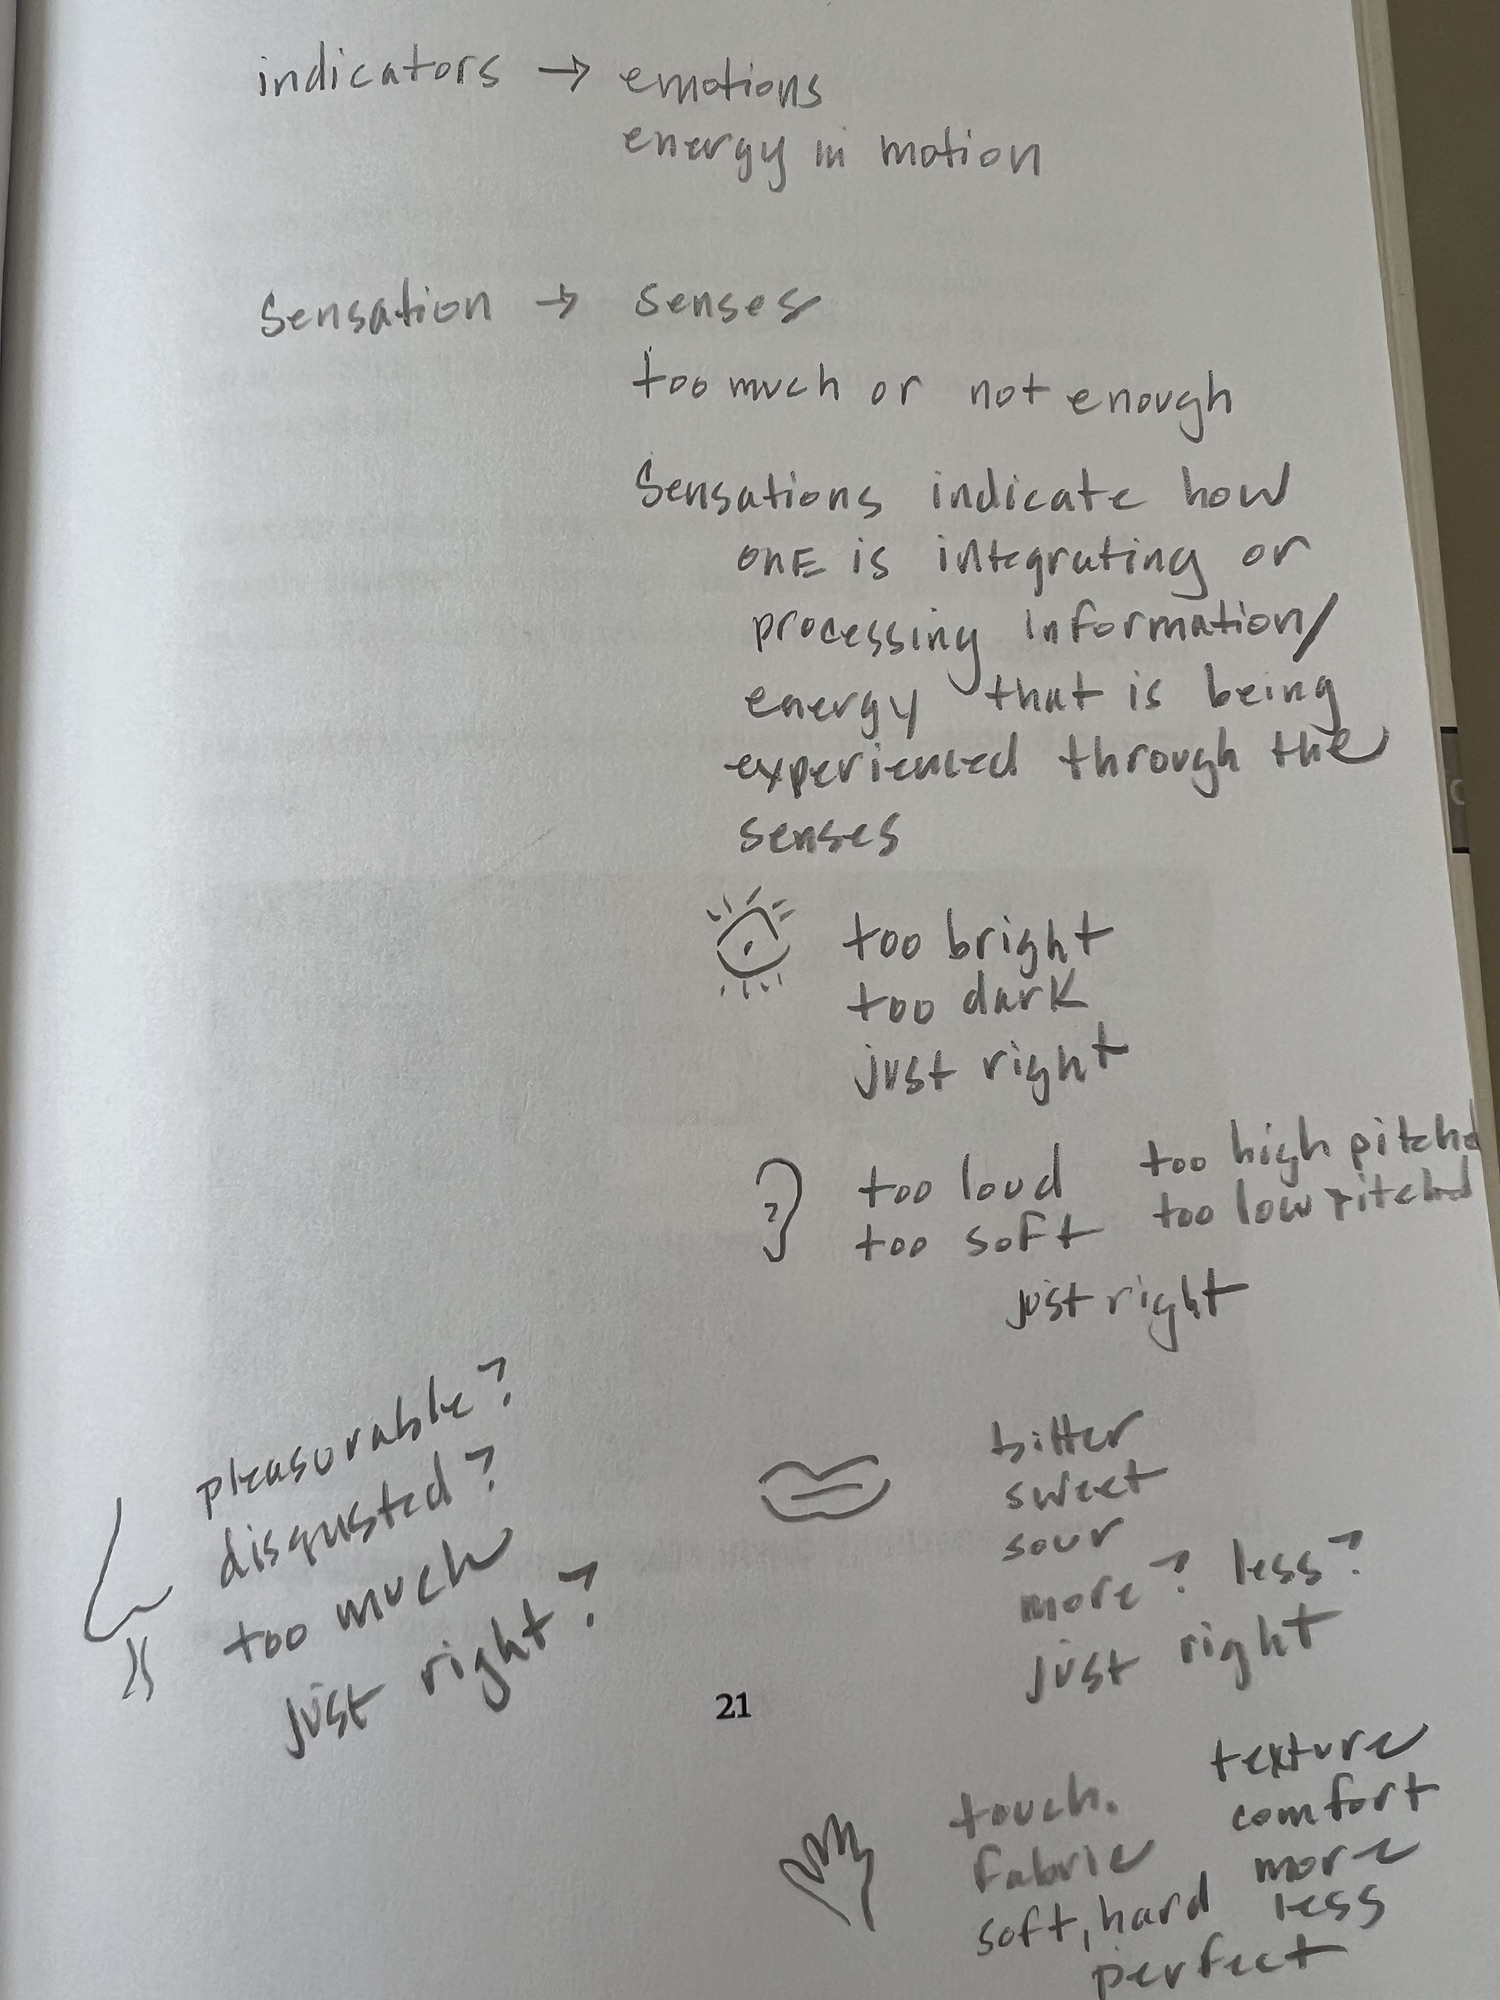 indicators → emotions
energy in motion
Sensation → senses
too much or not enough
Sensations indicate how
one is integrating or
processing information/
energy that is being
experienced through the
senses
too bright
too dark
just right
too loud too high pitched
too soft too low pitched
just right
pleasurable?
disgusted?
too much
just right?
bitter
sweet
sour
more? less?
just right
21
touch. texture
fabric comfort
soft, hard more
less
perfect